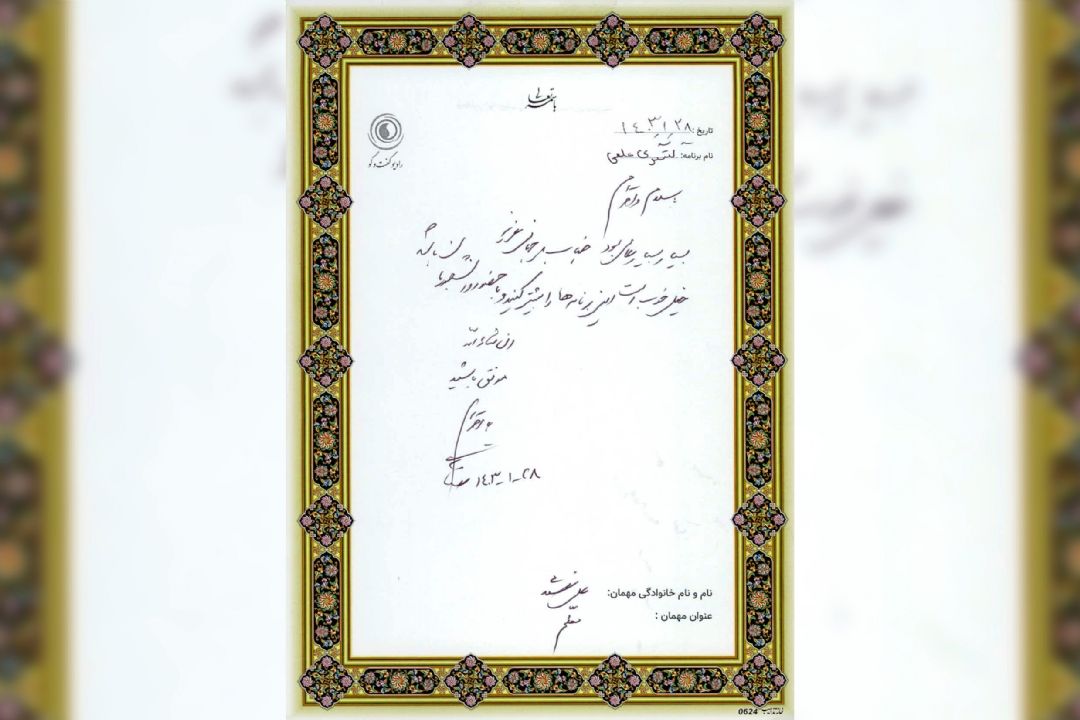 باسمه تعالی
رادیو گفت و گو
تاریخ: ۱۴۰۳/۱/۲۸
نام برنامه: علمی
با سلام و احترام
بسیار بسیار عالی بود جناب عزیز
خیلی خوب است این برنامه‌ها را بیشتر کنید و با حضور دانشجوها باشد
ان شاء الله
موفق باشید
با احترام
۱۴۰۳-۱-۲۸
نام و نام خانوادگی مهمان: علی
عنوان مهمان : معلم
0624